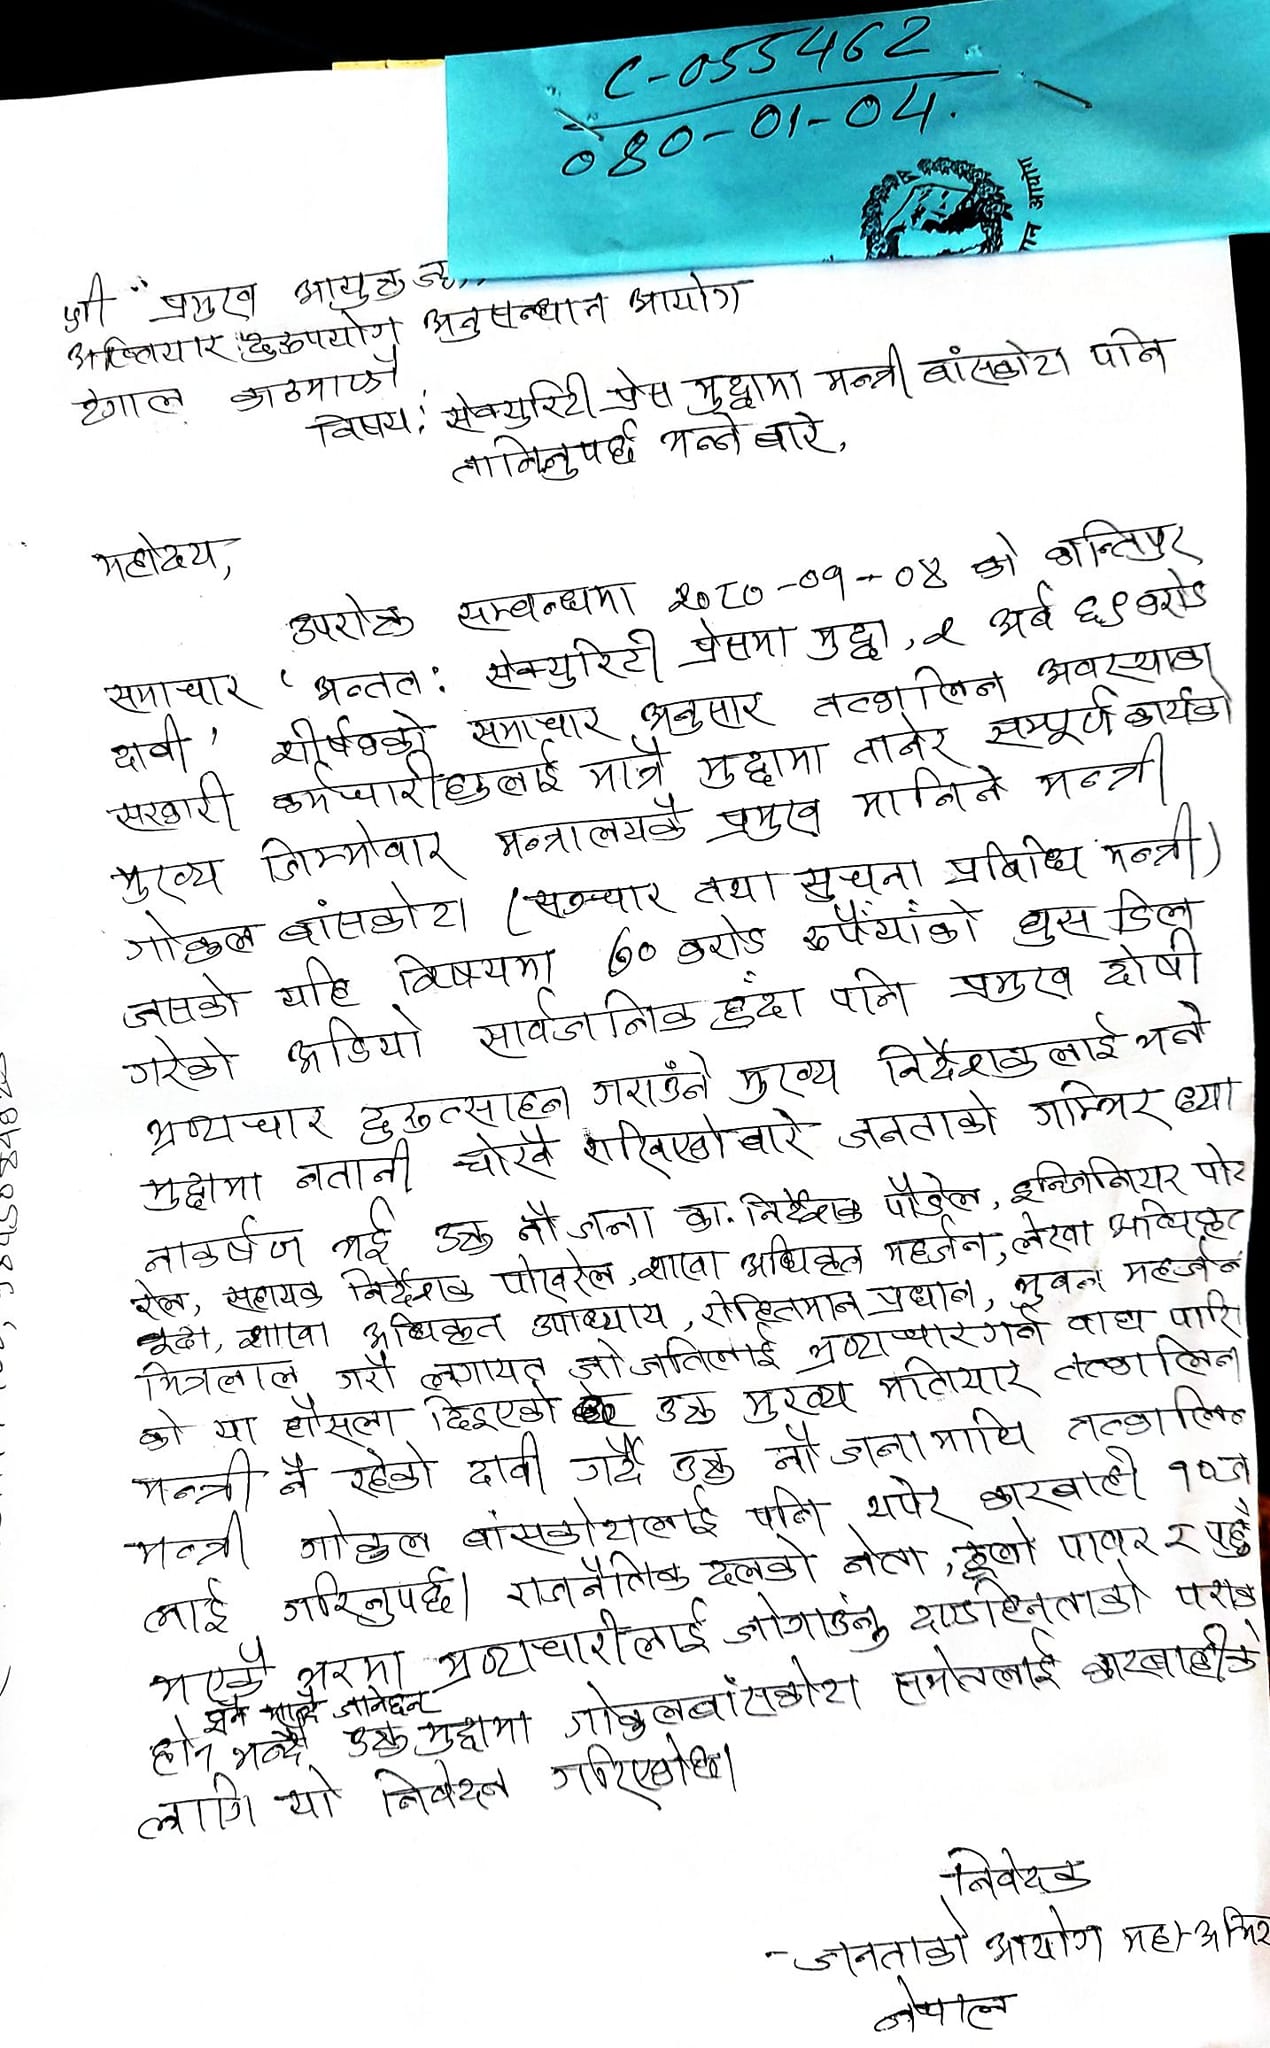 C-055462
080-01-04.
श्री प्रमुख आयुक्त ज्यू
अख्तियार दुरुपयोग अनुसन्धान आयोग
टंगाल काठमाण्डौ
विषय: सेक्युरिटी प्रेस मुद्धामा मन्त्री बांसकोटा पनि
तानिनुपर्छ भन्ने बारे,
महोदय,
उपरोक्त सम्बन्धमा २०८०-०१-०४ को कान्तिपुर
समाचार 'अन्तत: सेक्युरिटी प्रेसमा मुद्धा, अर्ब ६९ करोड
दावी' शीर्षकको समाचार अनुसार तत्कालिन अवस्थाका
सरकारी कर्मचारीहरुलाई मात्रै मुद्धामा तानेर सम्पूर्ण कार्यको
मुख्य जिम्मेवार मन्त्रालयकै प्रमुख मानिने मन्त्री
गोकुल बांसकोटा (सञ्चार तथा सुचना प्रबिधि मन्त्री)
जसको यहि विषयमा ७० करोड रुपैंयाँको घुस डिल
गरेको अडियो सार्वजानिक हुँदा पनि प्रमुख दोषी
भ्रष्टाचार दुरुत्साहन गराउने मुख्य निर्देशकलाई भने
मुद्धामा नतानी चोखै राखिएकोबारे जनताको गम्भिर ध्या
नाकर्षण भई उक्त नौ जना का. निर्देशक पौडेल, इन्जिनियर पोख
रेल, सहायक निर्देशक पोखरेल, शाखा अधिकृत महर्जन, लेखा अधिकृत
बुढा, शाखा अधिकृत उपाध्याय, रोहितमान प्रधान, भुवन महर्जन
मित्रलाल गरौ लगायत जो जतिलाई भ्रष्टाचार गर्न वाध्य पारि
को या हौसला दिइएको उक्त मुख्य मतियार तत्कालिन
मन्त्री नै रहेको दावी गर्दै उक्त नौ जना माथि तत्कालिन
मन्त्री गोकुल बांसकोटालाई पनि थपेर कारबाही १० ज
लाई गरिनुपर्छ। राजनैतिक दलको नेता, ठूलो पावर र पहुँच
भएकै भरमा भ्रष्टाचारीलाई जोगाउनु दण्डहिनताको
होन भन्दै उक्त मुद्दामा गोकुल बांसकोटा समेतलाई कारबाहीको
लागि यो निवेदन गरिएकोछ।
निवेदक
-जनताको आयोग महा-अभि
नेपाल